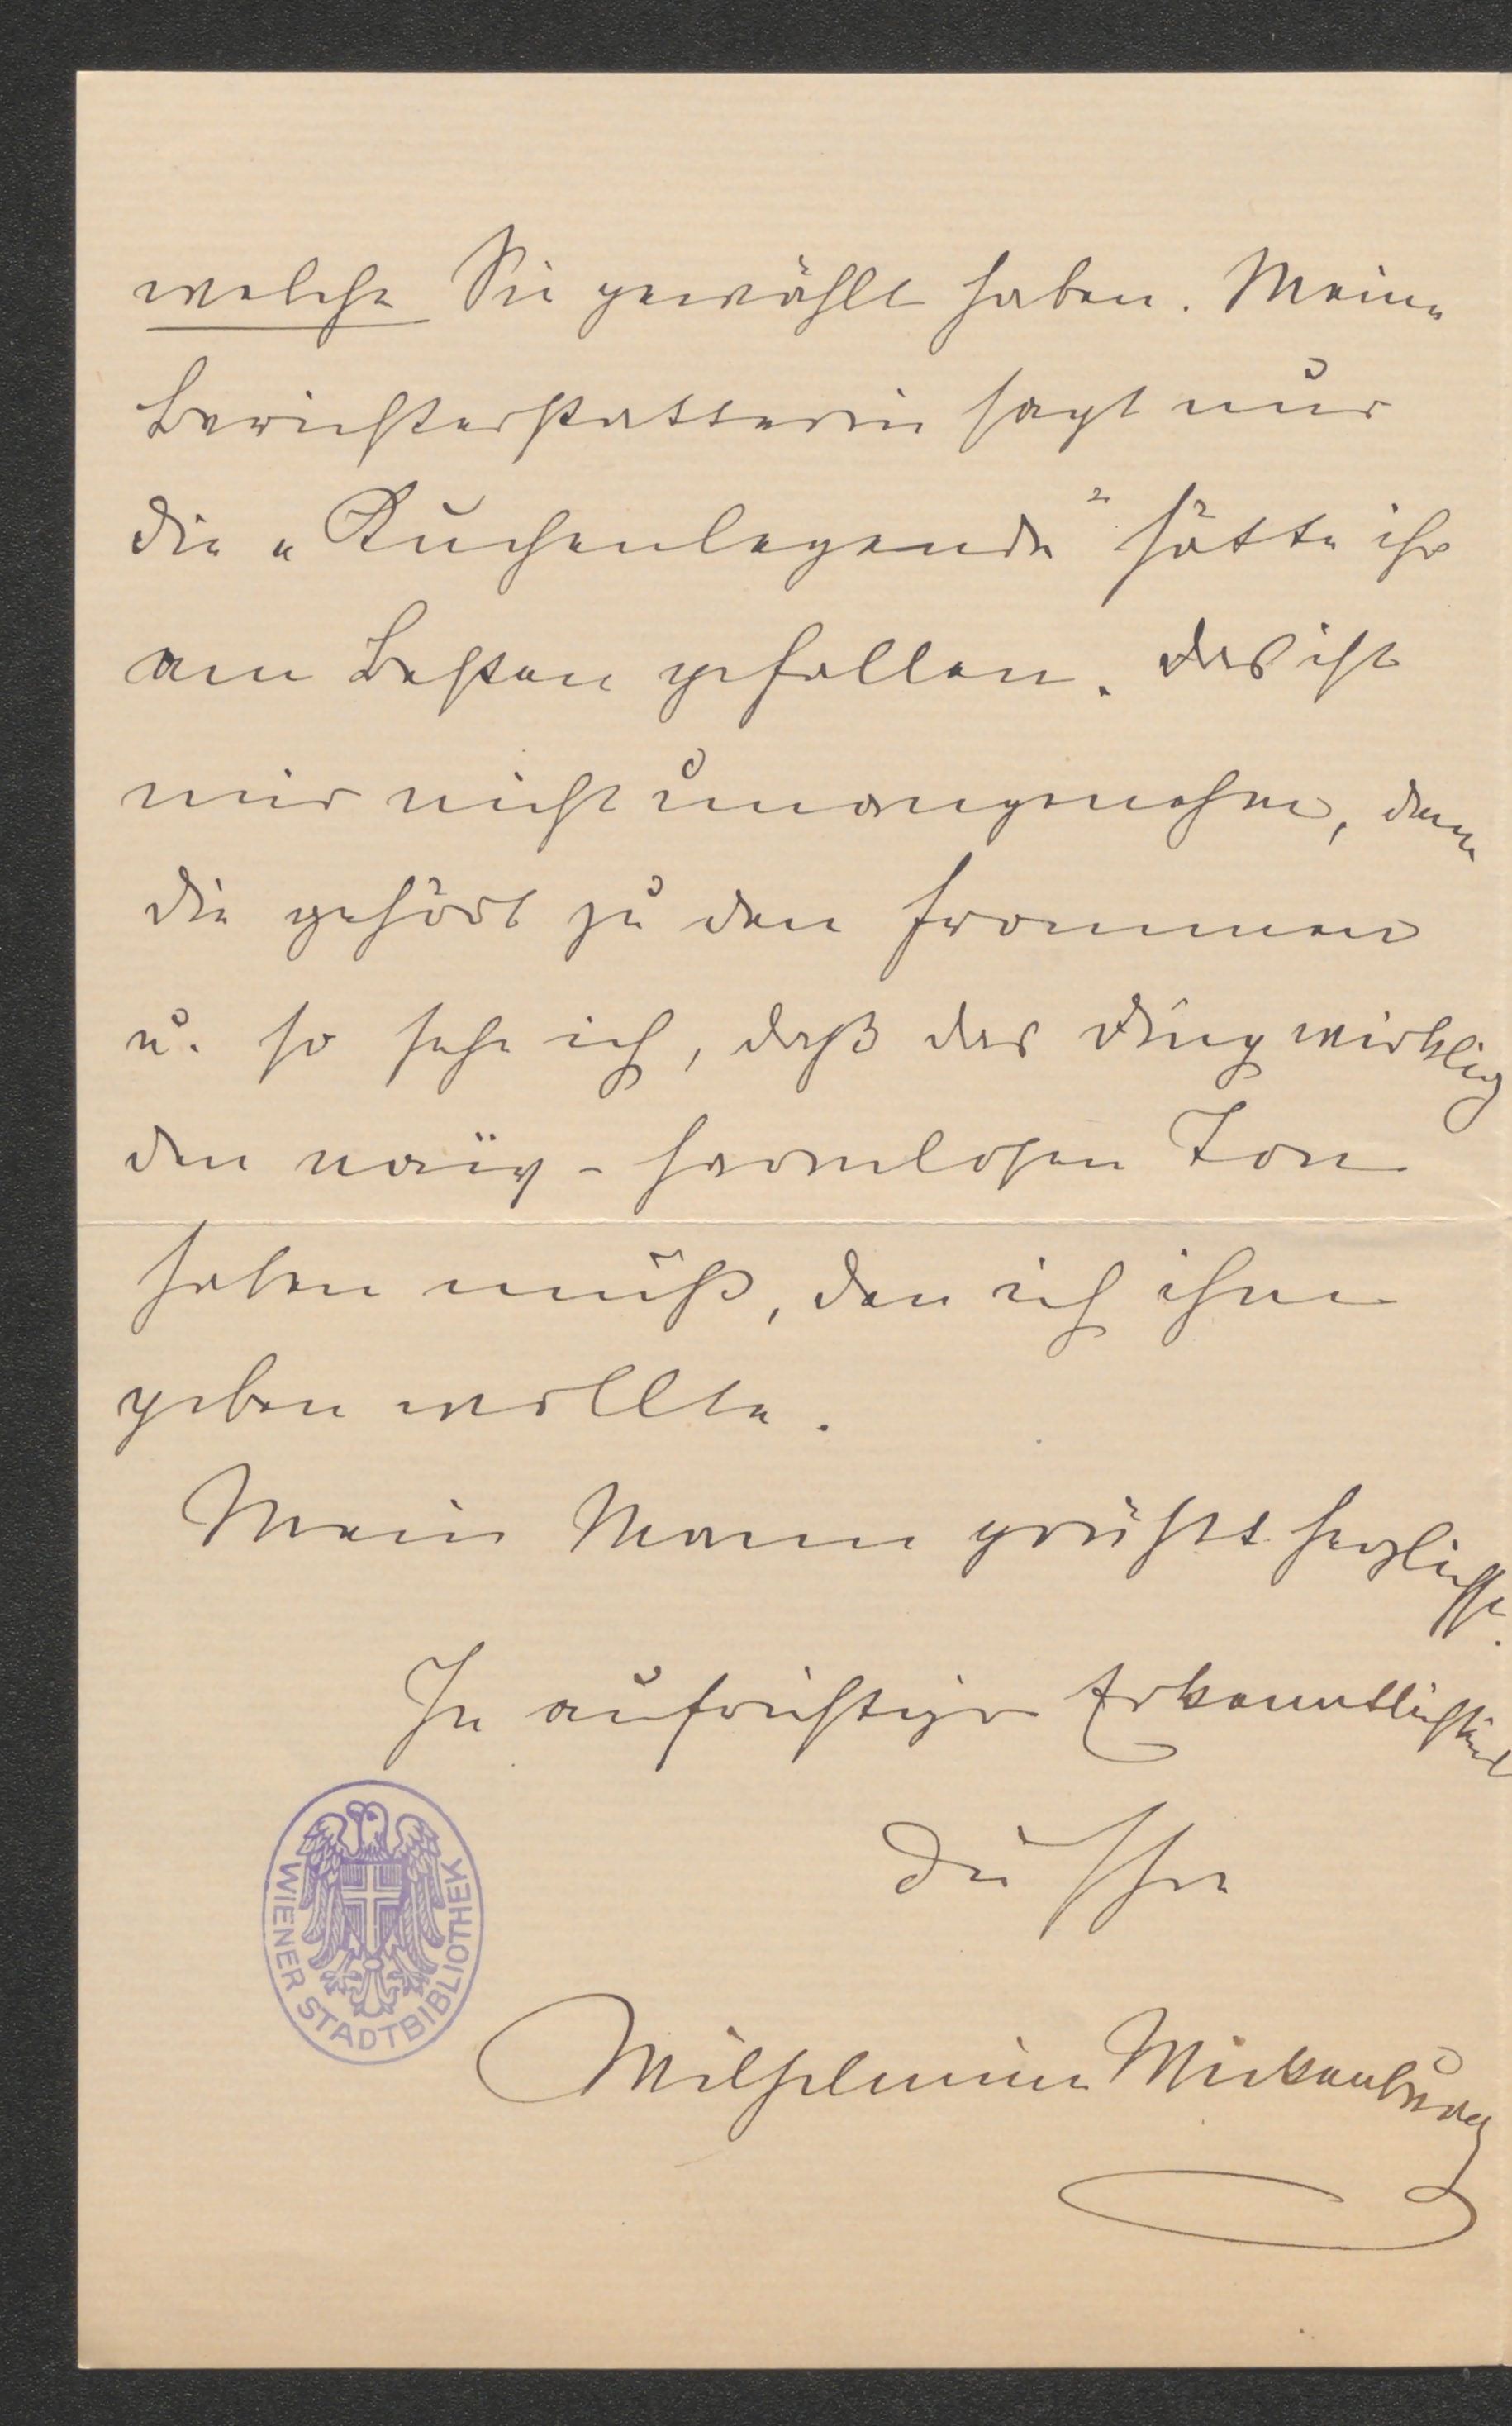 welche Sie gewählt haben. Meine
Berichterstatterin sagt nur
die „Kuchenlegende" hätte ihr
am Besten gefallen. Das ist
mir nicht unangenehm, denn
die gehört zu den frommen
u. so sehe ich, daß das Ding wirklich
den naiv-harmlosen Ton
haben muß, den ich ihm
geben wollte.
Mein Mann grüßt herzlichst.
In aufrichtiger Erkenntlichkeit
die Ihre
Wilhelmine Wickenburg
WIENER STADTBIBLIOTHEK